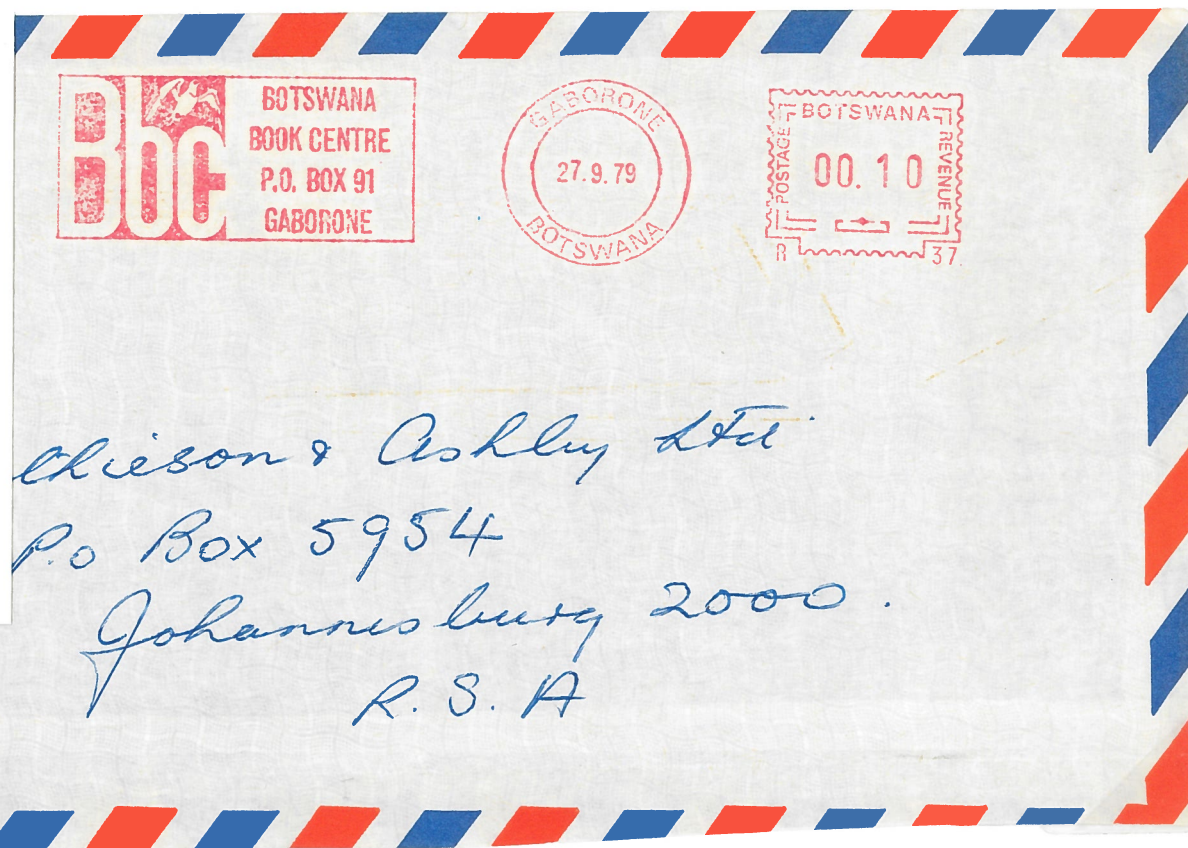 Bbc
BOTSWANA
BOOK CENTRE
P.O. BOX 91
GABORONE
GABORONE
27.9.79
BOTSWANA
BOTSWANA
POSTAGE
00.10
REVENUE
R 37
& Ashby Ltd
P.o Box 5954
Johannesburg 2000.
R. S. A